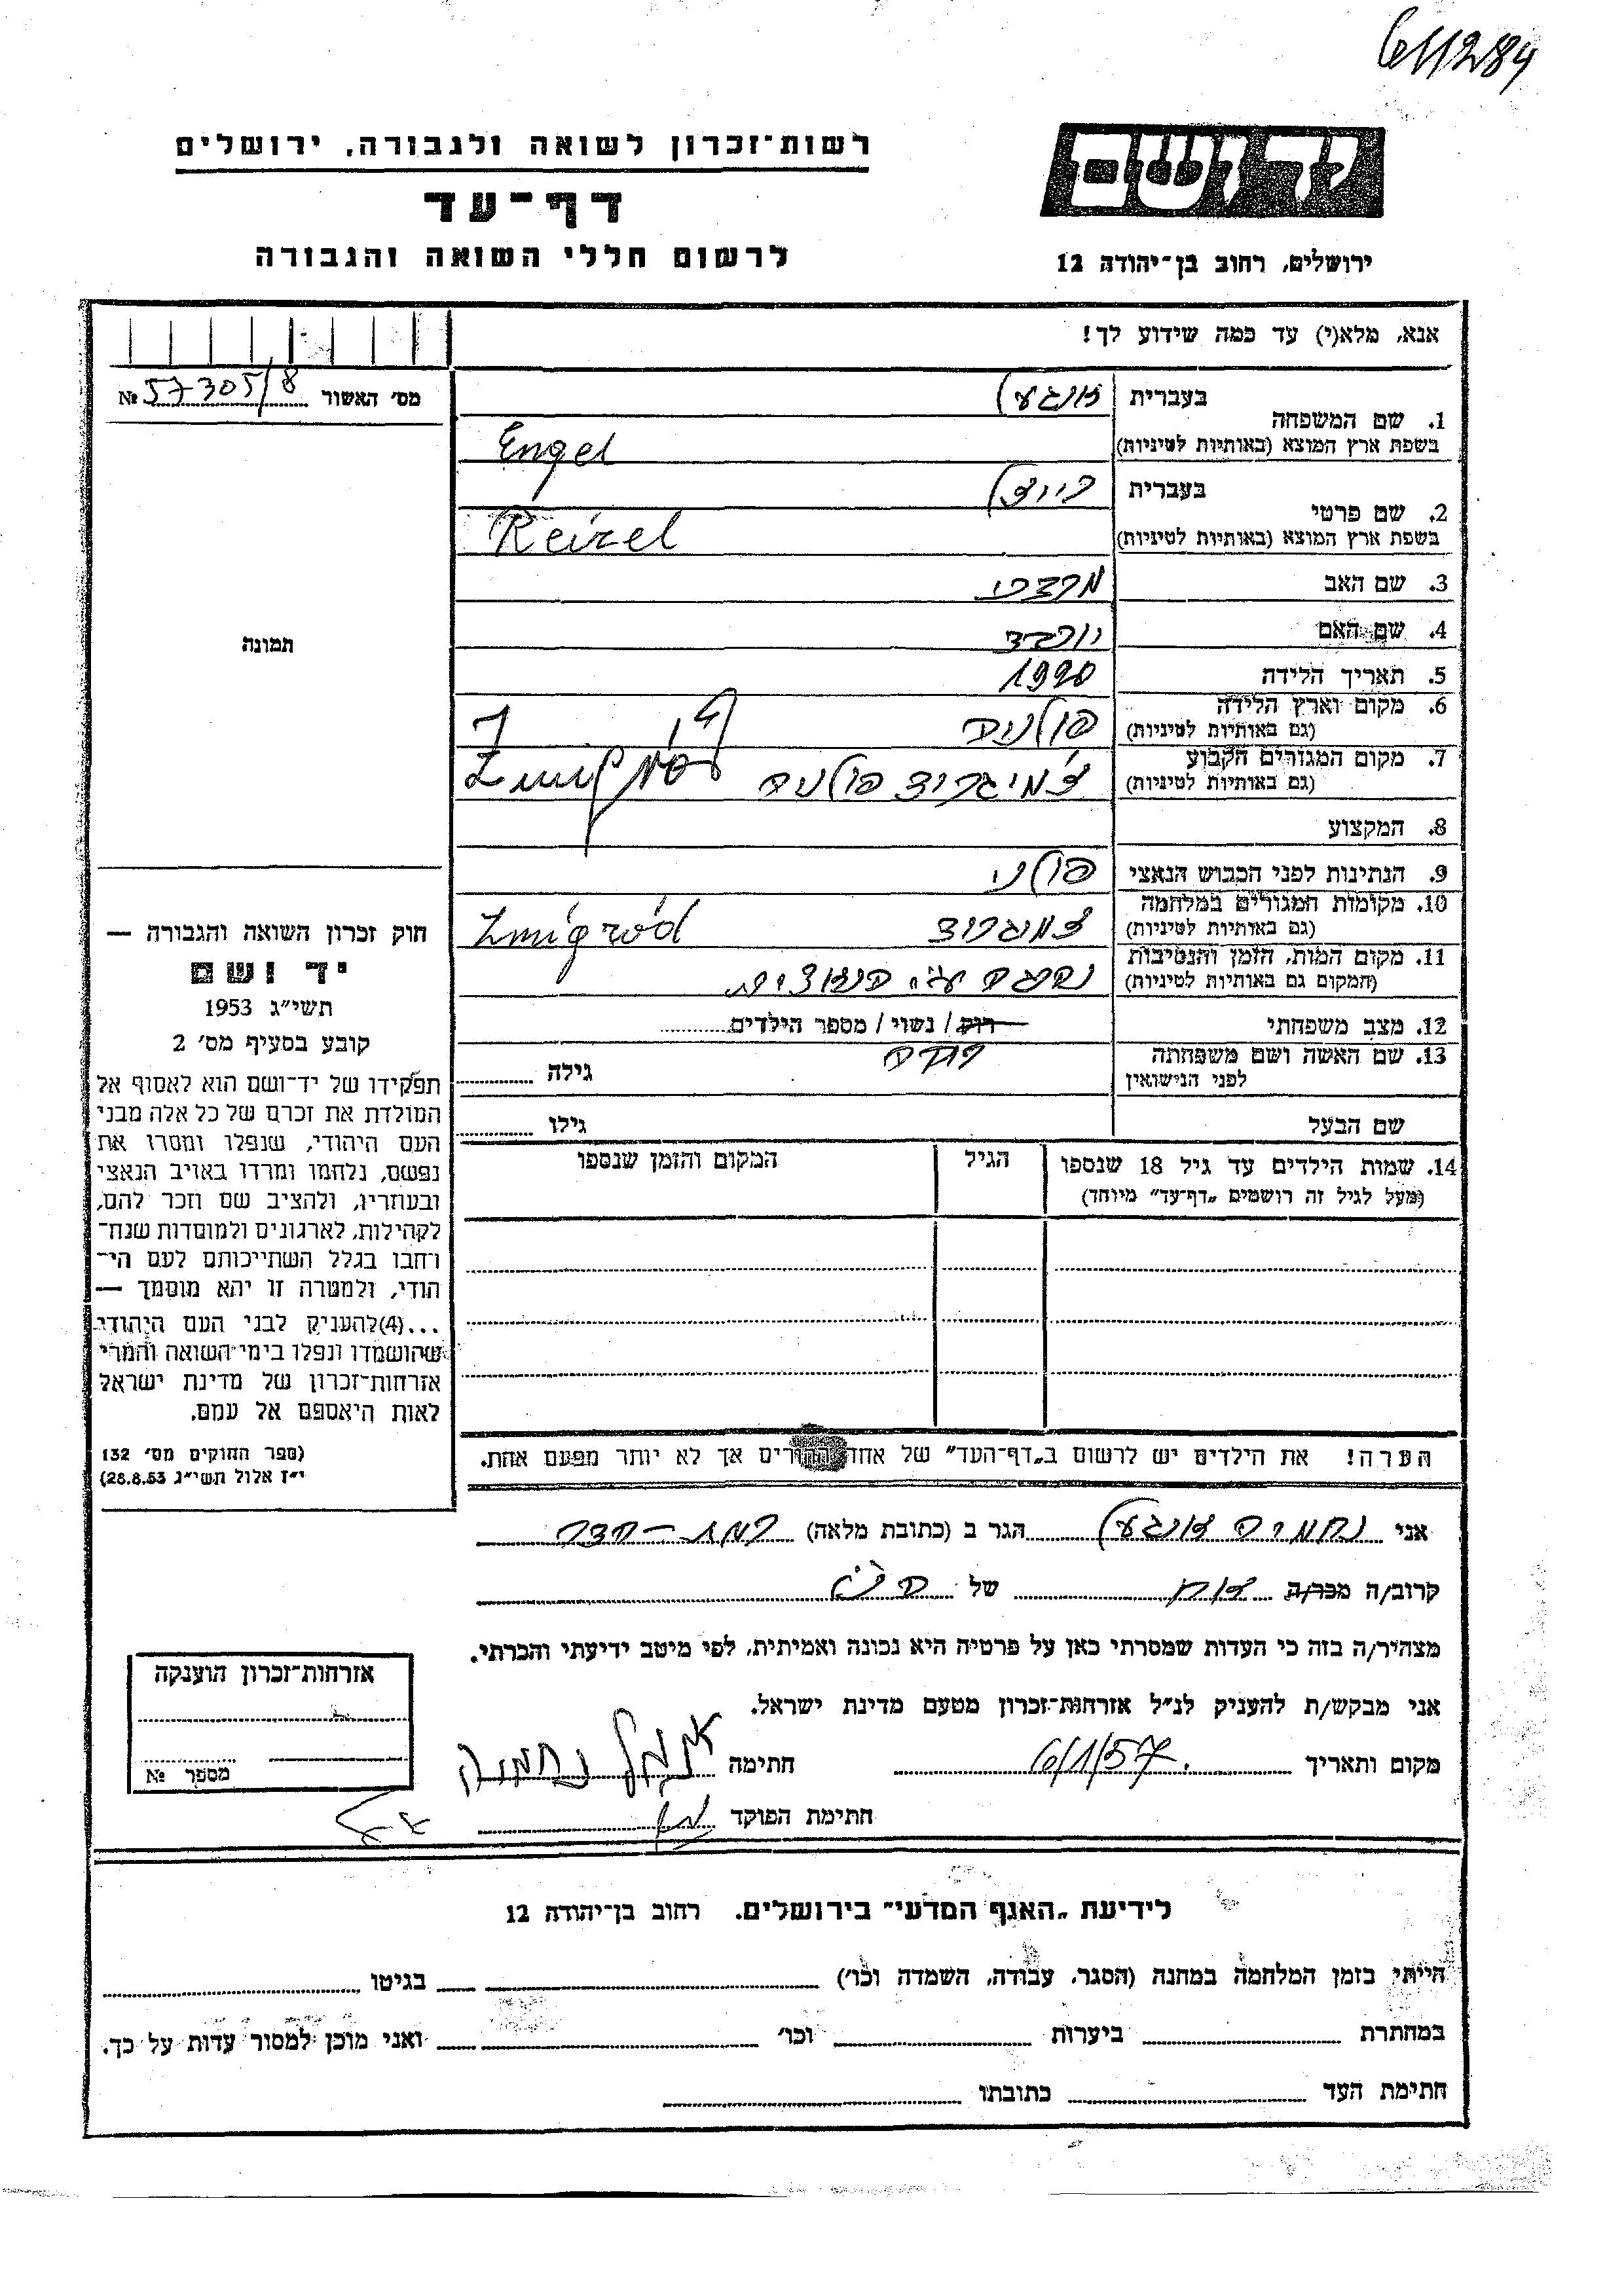 61128г
רשות־זכרון לשואה ולגבורה, ירושלים
יד ושם
דף־עד
לרשום חללי השואה והגבורה
ירושלים, רחוב בן־יהודה 12
אנא, מלא(י) עד כמה שידוע לך!
מס׳ האשור № 57305/8
1. שם המשפחה
בעברית אנגעל
בשפת ארץ המוצא (באותיות לטיניות) Engel
2. שם פרטי
בעברית רייזל
בשפת ארץ המוצא (באותיות לטיניות) Reizel
3. שם האב מרדכי
4. שם האם יוכבד
תמונה
5. תאריך הלידה 1920
6. מקום וארץ הלידה פולניה
(גם באותיות לטיניות)
7. מקום המגורים הקבוע
(גם באותיות לטיניות) ז׳מיגרוד פולניה
8. המקצוע
9. הנתינות לפני הכבוש הנאצי פולני
10. מקומות המגורים במלחמה
(גם באותיות לטיניות) זמיגרוד Zmigród
11. מקום המות, הזמן והנסיבות
(המקום גם באותיות לטיניות) נהרגה ע״י
12. מצב משפחתי רוק / נשוי / מספר הילדים
13. שם האשה ושם משפחתה
לפני הנישואין
גילה
שם הבעל גילו
14. שמות הילדים עד גיל 18 שנספו
(מעל לגיל זה רושמים „דף־עד״ מיוחד)
הגיל
המקום והזמן שנספו
הערה! את הילדים יש לרשום ב„דף־העד״ של אחד ההורים אך לא יותר מפעם אחת.
חוק זכרון השואה והגבורה —
יד ושם
תשי״ג 1953
קובע בסעיף מס׳ 2
תפקידו של יד־ושם הוא לאסוף אל
המולדת את זכרם של כל אלה מבני
העם היהודי, שנפלו ומסרו את
נפשם, נלחמו ומרדו באויב הנאצי
ובעוזריו, ולהציב שם וזכר להם,
לקהילות, לארגונים ולמוסדות שנח־
רבו בגלל השתייכותם לעם הי־
הודי, ולמטרה זו יהא מוסמך —
...(4)להעניק לבני העם היהודי
שהושמדו ונפלו בימי השואה והמרי
אזרחות־זכרון של מדינת ישראל
לאות היאספם אל עמם.
(ספר החוקים מס׳ 132
י״ז אלול תשי״ג 28.8.53)
אני נחמיה אנגעל הגר ב (כתובת מלאה) רמת-הדר
קרוב/ה מכר/ה אח של הנ״ל
מצהיר/ה בזה כי העדות שמסרתי כאן על פרטיה היא נכונה ואמיתית, לפי מיטב ידיעתי והכרתי.
אני מבקש/ת להעניק לנ״ל אזרחות־זכרון מטעם מדינת ישראל.
מקום ותאריך 6/1/57 חתימה אנגל נחמיה
חתימת הפוקד
אזרחות־זכרון הוענקה
מספר №
לידיעת „האגף המדעי״ בירושלים. רחוב בן־יהודה 12
הייתי בזמן המלחמה במחנה (הסגר, עבודה, השמדה וכו׳) בגיטו
במחתרת ביערות וכו׳ ואני מוכן למסור עדות על כך.
חתימת העד כתובתו